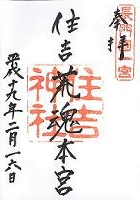 奉拝
長門國一宮
住吉荒魂本宮
住吉神社
平成十九年二月一六日